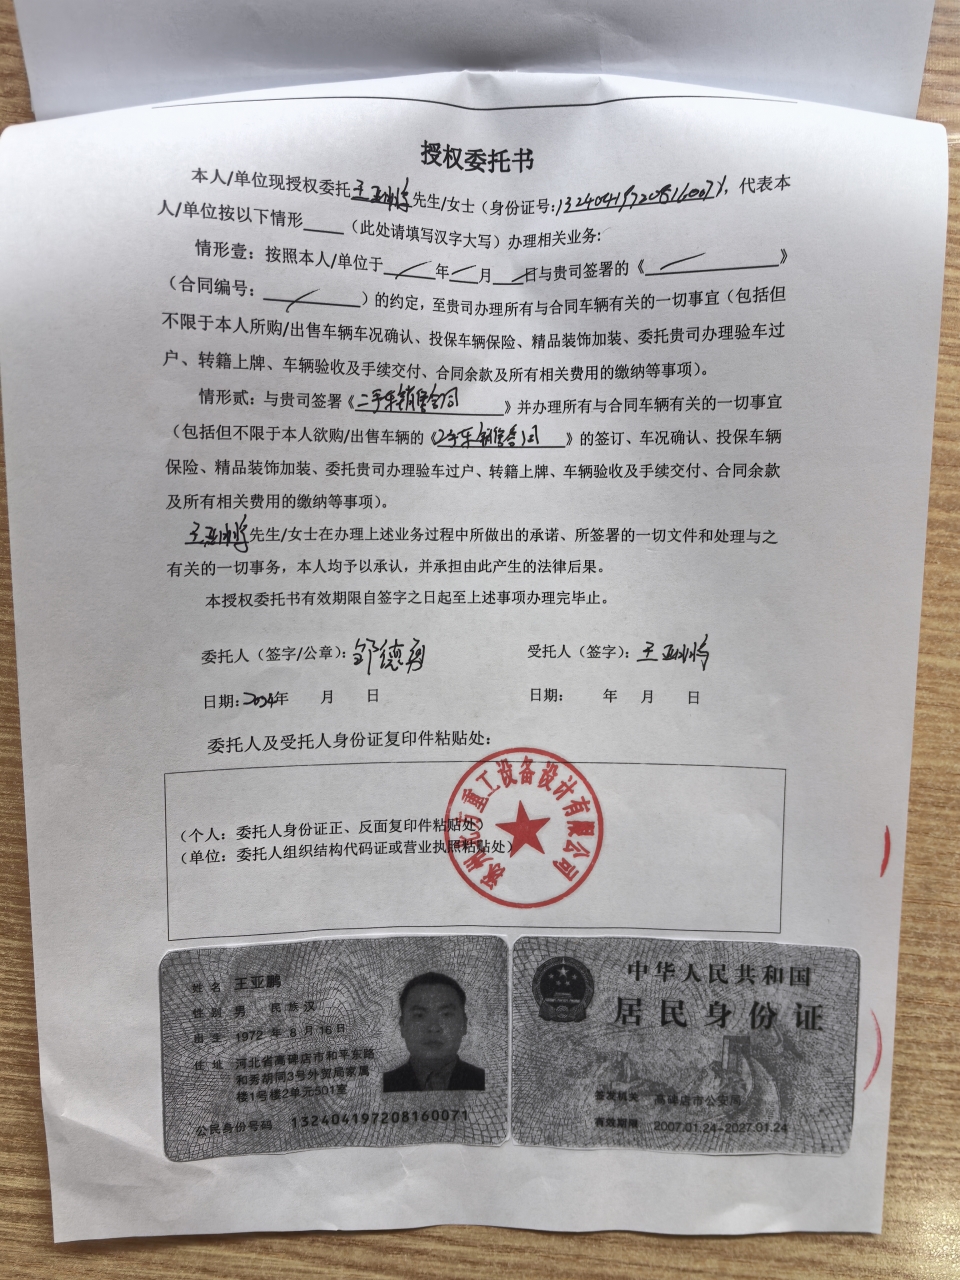 授权委托书
本人/单位现授权委托王亚鹏先生/女士（身份证号:132404197208160071，代表本
人/单位按以下情形____（此处请填写汉字大写）办理相关业务:
情形壹：按照本人/单位于____年____月____日与贵司签署的《____》
（合同编号：____）的约定，至贵司办理所有与合同车辆有关的一切事宜（包括但
不限于本人所购/出售车辆车况确认、投保车辆保险、精品装饰加装、委托贵司办理验车过
户、转籍上牌、车辆验收及手续交付、合同余款及所有相关费用的缴纳等事项）。
情形贰：与贵司签署《二手车销售合同》并办理所有与合同车辆有关的一切事宜
（包括但不限于本人欲购/出售车辆的《2手车销售合同》的签订、车况确认、投保车辆
保险、精品装饰加装、委托贵司办理验车过户、转籍上牌、车辆验收及手续交付、合同余款
及所有相关费用的缴纳等事项）。
王亚鹏先生/女士在办理上述业务过程中所做出的承诺、所签署的一切文件和处理与之
有关的一切事务，本人均予以承认，并承担由此产生的法律后果。
本授权委托书有效期限自签字之日起至上述事项办理完毕止。
委托人（签字/公章）：邹德勇 受托人（签字）：王亚鹏
日期:2024年 月 日 日期: 年 月 日
委托人及受托人身份证复印件粘贴处：
（个人：委托人身份证正、反面复印件粘贴处）
（单位：委托人组织结构代码证或营业执照粘贴处）
涿州北方重工设备设计有限公司
姓名 王亚鹏
性别 男 民族 汉
出生 1972 年 8 月 16 日
住址 河北省高碑店市和平东路
和秀胡同3号外贸局家属
楼1号楼2单元501室
公民身份号码 132404197208160071
中华人民共和国
居民身份证
签发机关 高碑店市公安局
有效期限 2007.01.24-2027.01.24